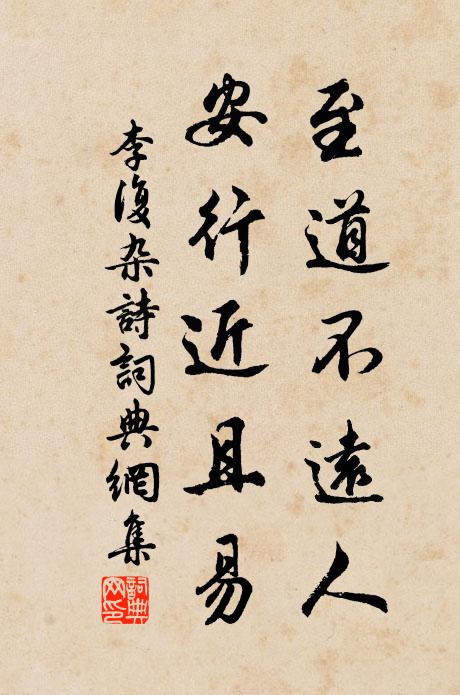 至道不遠人
安行近且易
李復杂詩詞典網集
詞典網印